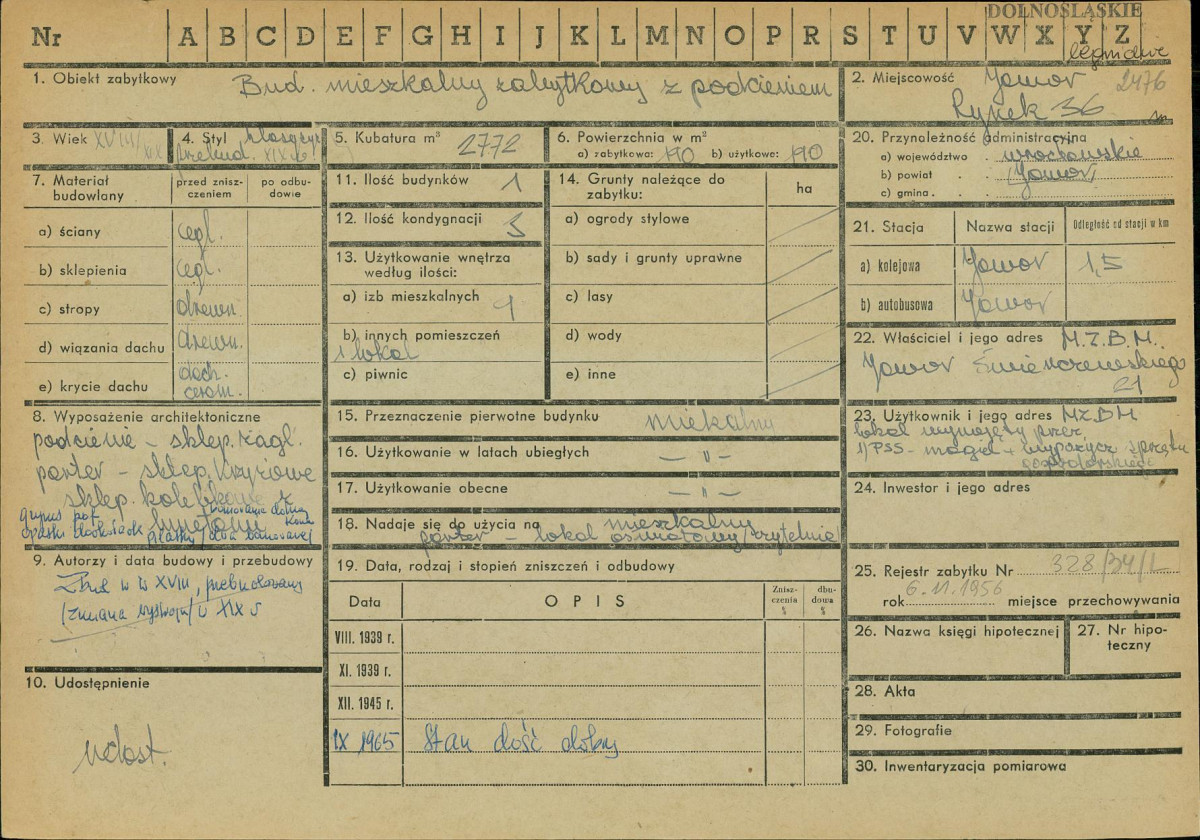 DOLNOŚLĄSKIE
Nr A B C D E F G H I J K L M N O P R S T U V W X Y Z
legnickie
1. Obiekt zabytkowy Bud. mieszkalny zabytkowy z podcieniem
2. Miejscowość Jawor 2476
Rynek 36
3. Wiek XVIII/XIX
4. Styl klasycyz.
przebud. XIX w
5. Kubatura m³ 2772
6. Powierzchnia w m²
a) zabytkowa: 190 b) użytkowe: 190
7. Materiał budowlany
przed zniszczeniem
po odbudowie
a) ściany cegl.
b) sklepienia cegl.
c) stropy drewn.
d) wiązania dachu drewn.
e) krycie dachu dach. ceram.
8. Wyposażenie architektoniczne
podcienie – sklep. żagl.
parter – sklep. krzyżowe
sklep. kolebkowe z
lunetami
9. Autorzy i data budowy i przebudowy
Zbud w w XVIII, przebudowany
(zmiana wystroju) w XIX w
10. Udostępnienie
udost.
11. Ilość budynków 1
12. Ilość kondygnacji 3
13. Użytkowanie wnętrza
według ilości:
a) izb mieszkalnych 9
b) innych pomieszczeń
1 lokal
c) piwnic
14. Grunty należące do
zabytku:
ha
a) ogrody stylowe
b) sady i grunty uprawne
c) lasy
d) wody
e) inne
15. Przeznaczenie pierwotne budynku miekalny
16. Użytkowanie w latach ubiegłych — " —
17. Użytkowanie obecne — " —
18. Nadaje się do użycia na mieszkalny
parter – lokal oświatowy/czytelnia/
19. Data, rodzaj i stopień zniszczeń i odbudowy
Data OPIS Zniszczenia % dbudowa %
VIII. 1939 r.
XI. 1939 r.
XII. 1945 r.
IX 1965 Stan dość dobry
20. Przynależność administracyjna
a) województwo wrocławskie
b) powiat Jawor
c) gmina
21. Stacja Nazwa stacji Odległość od stacji w km
a) kolejowa Jawor 1,5
b) autobusowa Jawor
22. Właściciel i jego adres M.Z.B.M.
Jawor Świerczewskiego
21
23. Użytkownik i jego adres MZBM
lokal wynajęty przez
1) PSS – magiel + wypożycz. sprzętu
gospodarskiego
24. Inwestor i jego adres
25. Rejestr zabytku Nr 328/34/L
rok 6.11.1956 miejsce przechowywania
26. Nazwa księgi hipotecznej
27. Nr hipoteczny
28. Akta
29. Fotografie
30. Inwentaryzacja pomiarowa